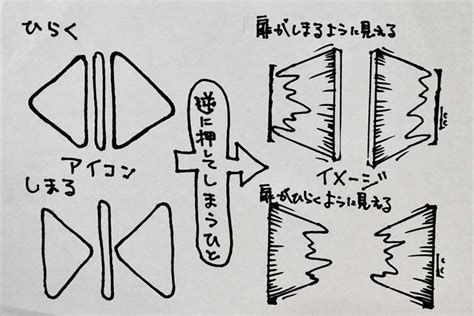 ひらく
アイコン
しまる
逆に押してしまうひと
扉がしまるように見える
イメージ
扉がひらくように見える